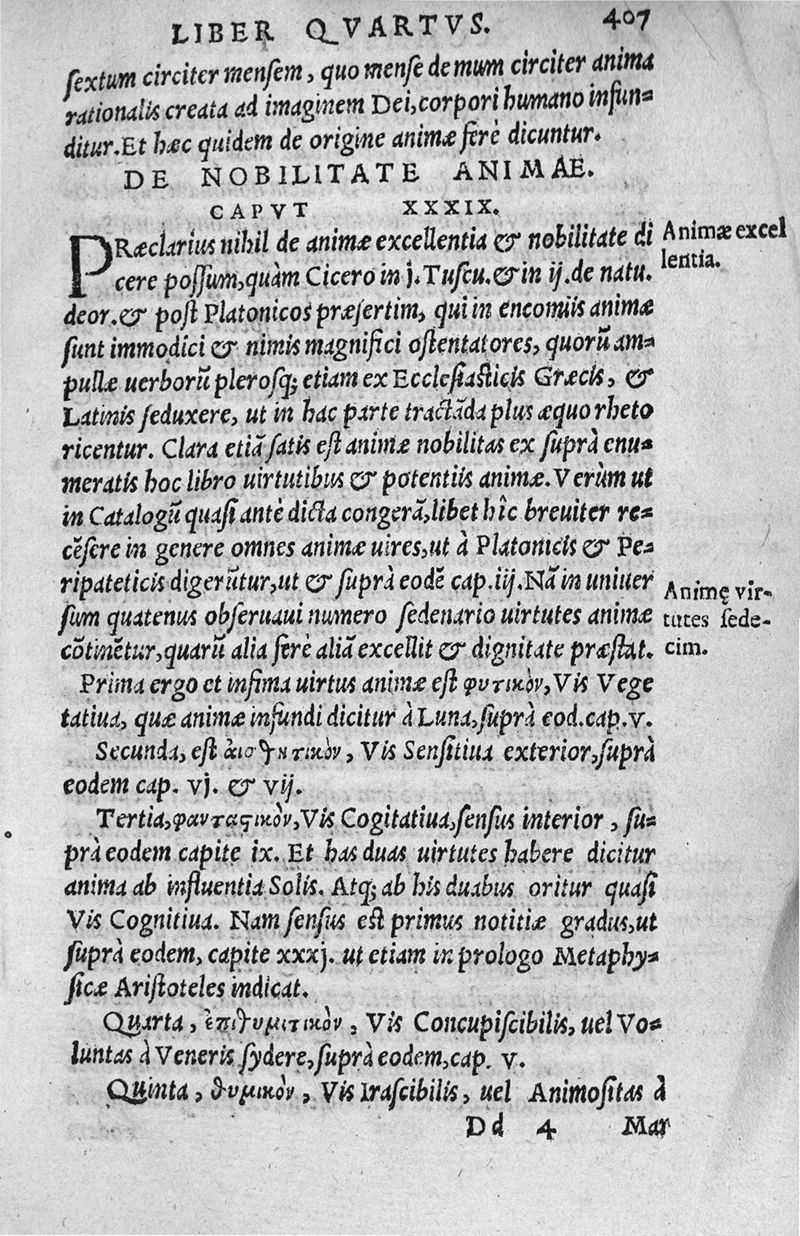 LIBER QVARTVS. 407
ſextum circiter menſem, quo menſe demum circiter anima
rationalis creata ad imaginem Dei, corpori humano infun-
ditur. Et hæc quidem de origine animæ ferè dicuntur.
DE NOBILITATE ANIMAE.
CAPVT XXXIX.
PRæclarius nihil de animæ excellentia & nobilitate di
Animæ excel
cere poſſum, quàm Cicero in j. Tuſcu. & in ij. de natu.
lentia.
deor. & poſt Platonicos præſertim, qui in encomiis animæ
ſunt immodici & nimis magnifici oſtentatores, quorū am-
pullæ uerborū pleroſq; etiam ex Eccleſiaſticis Græcis, &
Latinis ſeduxere, ut in hac parte tractāda plus æquo rheto
ricentur. Clara etiā ſatis eſt animæ nobilitas ex ſuprà enu-
meratis hoc libro uirtutibus & potentiis animæ. Verùm ut
in Catalogū quaſi antè dicta congerā, libet hîc breuiter re-
cēſere in genere omnes animæ uires, ut à Platonicis & Pe-
ripateticis digerūtur, ut & ſuprà eodē cap. iij. Nā in uniuer
Animę vir-
ſum quatenus obſeruaui numero ſedenario uirtutes animæ
tutes ſede-
cōtinētur, quarū alia ferè aliā excellit & dignitate præſtat.
cim.
Prima ergo et infima uirtus animæ eſt φυτικὸν, Vis Vege
tatiua, quæ animæ infundi dicitur à Luna, ſuprà eod. cap. v.
Secunda, eſt ἀισθητικὸν, Vis Senſitiua exterior, ſuprà
eodem cap. vj. & vij.
Tertia, φανταςικὸν, Vis Cogitatiua, ſenſus interior, ſu-
prà eodem capite ix. Et has duas uirtutes habere dicitur
anima ab influentia Solis. Atq; ab his duabus oritur quaſi
Vis Cognitiua. Nam ſenſus eſt primus notitiæ gradus, ut
ſuprà eodem, capite xxxj. ut etiam in prologo Metaphy-
ſicæ Ariſtoteles indicat.
Quarta, ἐπιθυμιτικὸν, Vis Concupiſcibilis, uel Vo-
luntas à Veneris ſydere, ſuprà eodem, cap. v.
Quinta, θυμικὸν, Vis Iraſcibilis, uel Animoſitas à
Dd 4 Mar